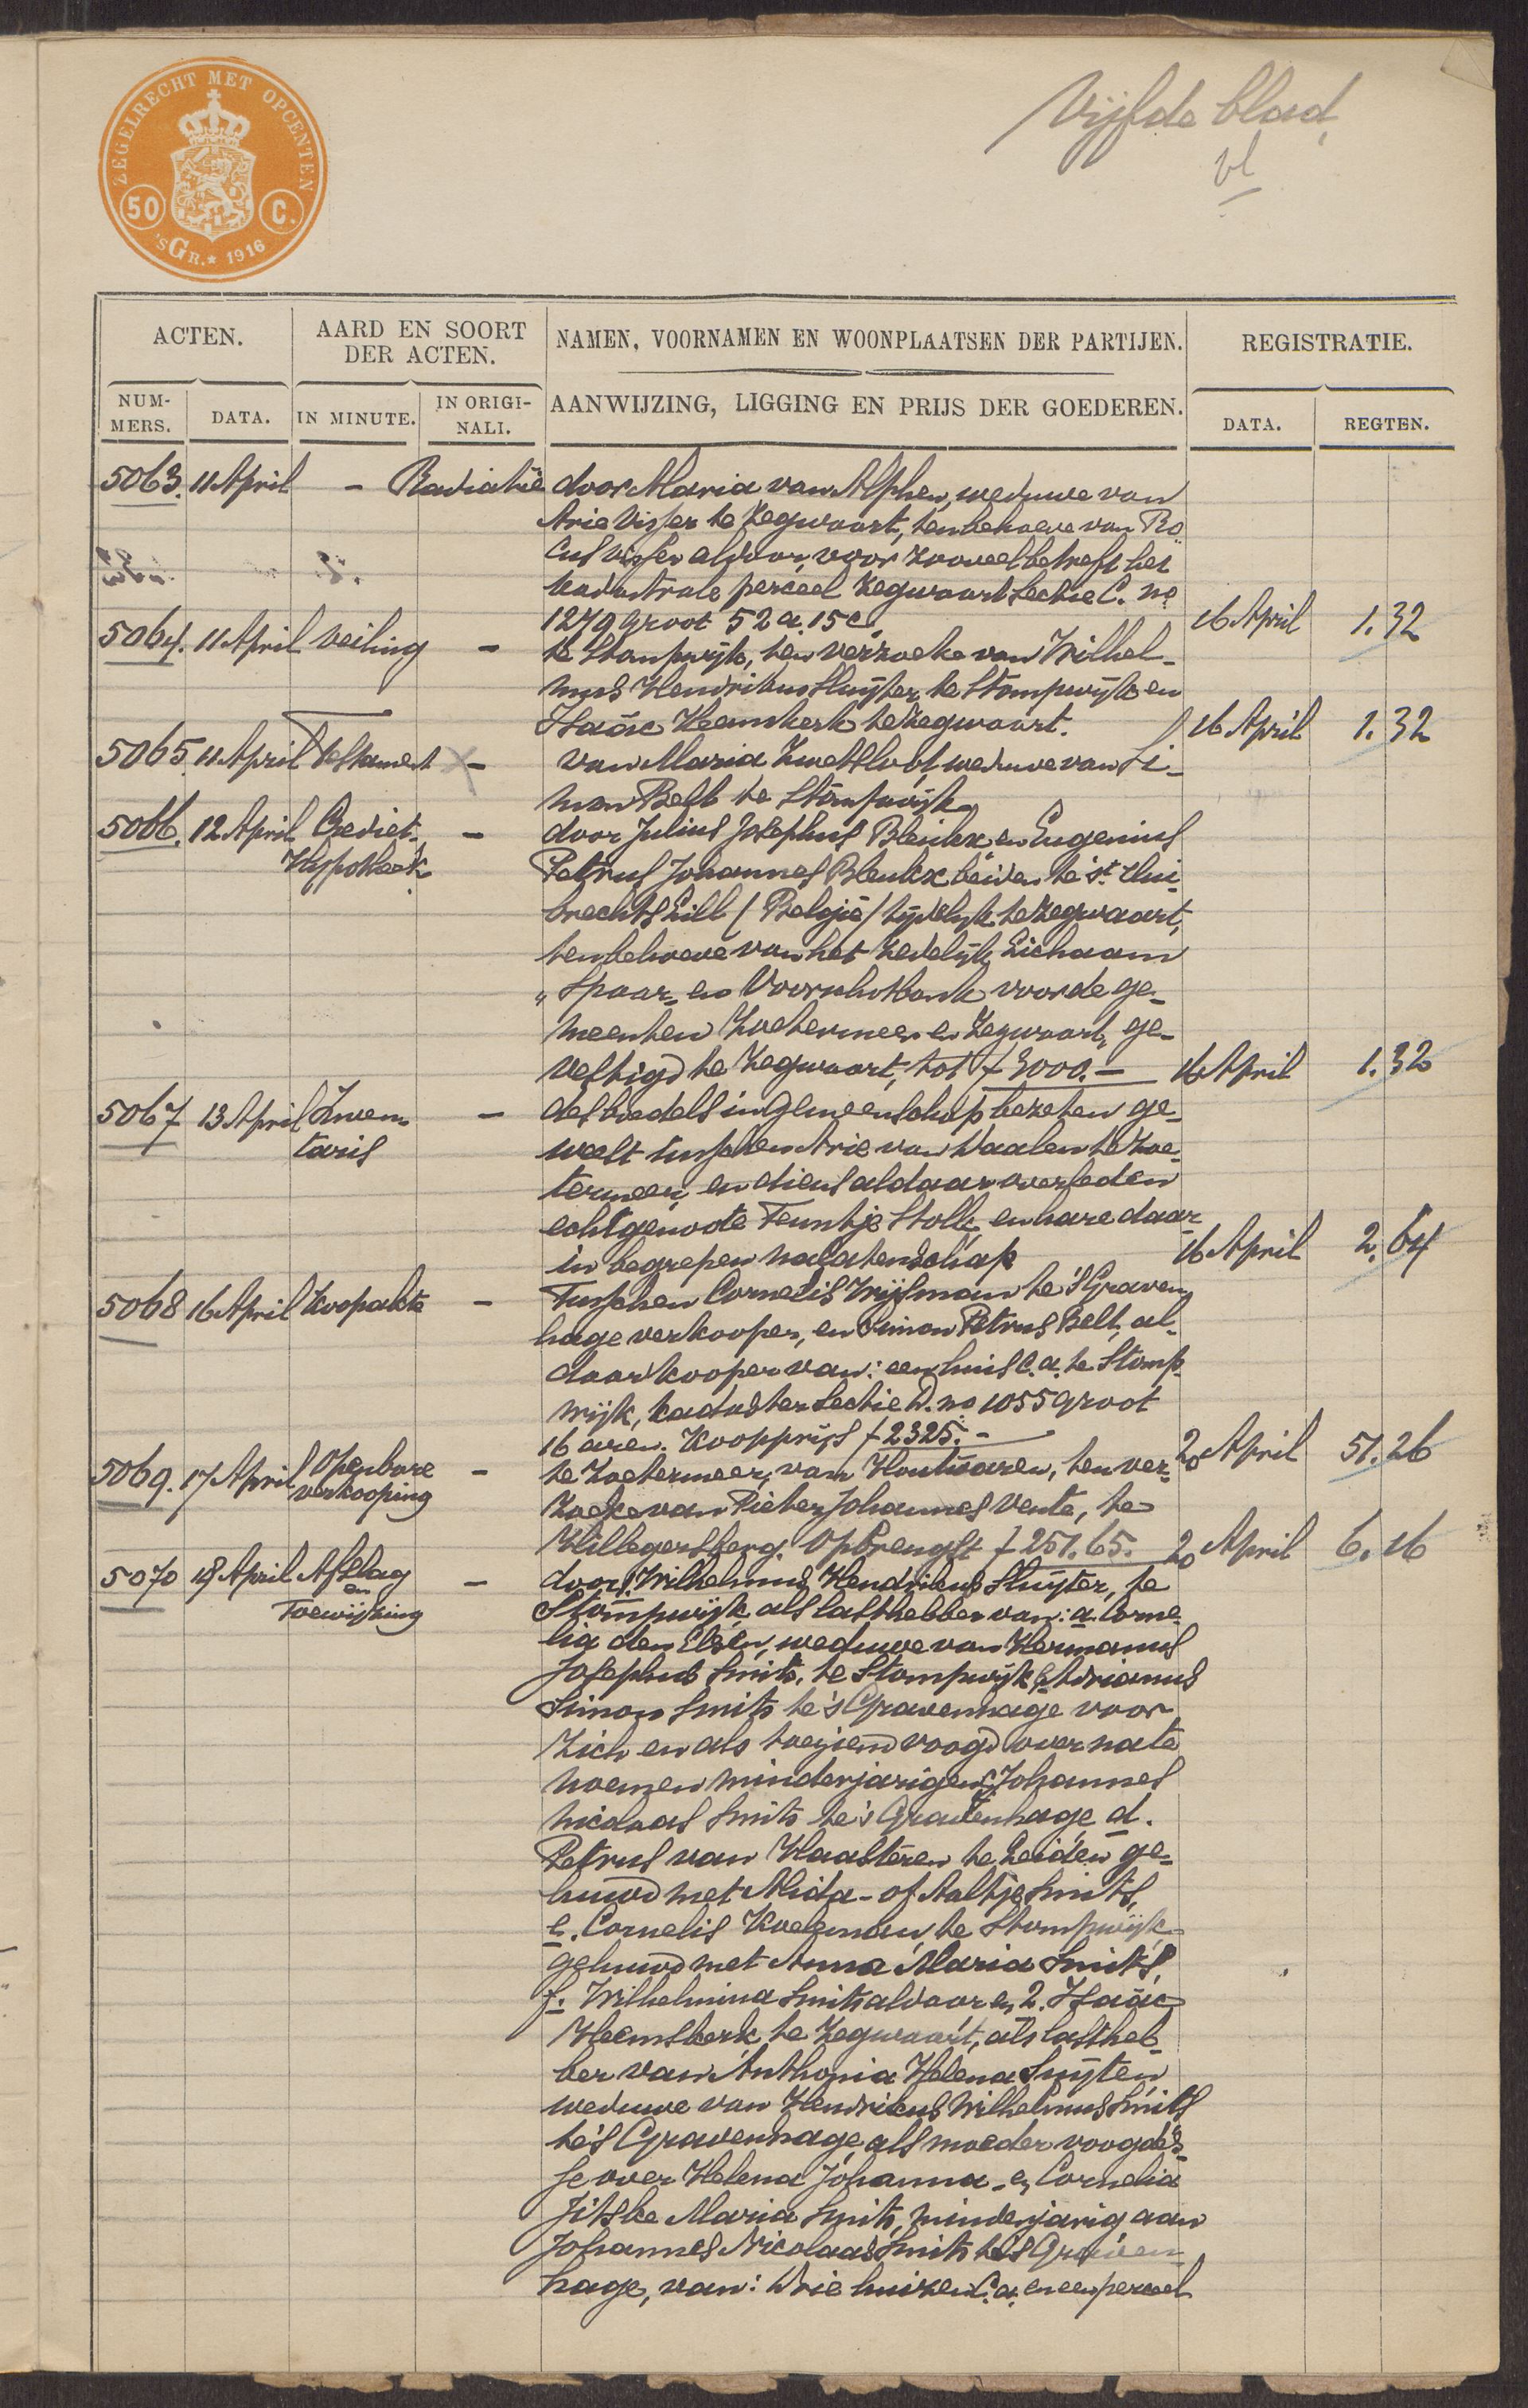 Vijfde blad
vl
ZEGELRECHT MET OPCENTEN
50 C.
'sGR.* 1916
ACTEN.
AARD EN SOORT
DER ACTEN.
NAMEN, VOORNAMEN EN WOONPLAATSEN DER PARTIJEN.
REGISTRATIE.
NUM-
MERS.
DATA.
IN MINUTE.
IN ORIGI-
NALI.
AANWIJZING, LIGGING EN PRIJS DER GOEDEREN.
DATA.
REGTEN.
5063. 11 April - Radiatie door Maria van Alphen, weduwe van
Arie Visser te Zegwaart, ten behoeve van Ro-
cus Visser aldaar, voor zooveel betreft het
kadastrale perceel Zegwaart Sectie C. no
1279 groot 52 a. 15 c. 16 April 1.32
5064. 11 April Veiling - te Stompwijk, ten verzoeke van Wilhel-
mus Hendrikus Sluijter te Stompwijk en
Isaäc Heemskerk te Zegwaart. 16 April 1.32
5065. 11 April Testament - van Maria Zwetsloot weduwe van Si-
mon Belt te Stompwijk
5066. 12 April Crediet- - door Julius Josephus Blenkx en Eugenius
Hypotheek Petrus Johannes Blenkx beiden te St. Hui-
brechts Lill (België) tijdelijk te Zegwaart,
ten behoeve van het Zedelijk Lichaam
"Spaar- en Voorschotbank voor de ge-
meenten Zoetermeer en Zegwaart, ge-
vestigd te Zegwaart, tot f 3000.- 16 April 1.32
5067 13 April Inven- - des boedels in gemeenschap bezeten ge-
taris weest tusschen Arie van Waalen te Zoe-
termeer, en diens aldaar overleden
echtgenoote Teuntje Stolk, en hare daar-
in begrepen nalatenschap 16 April 2.64
5068 16 April Koopakte - Tusschen Cornelis Wijsman te 's Graven-
hage verkooper, en Simon Petrus Belt, al-
daar kooper van: een huis c.a. te Stomp-
wijk, kadaster Sectie D. no 1055 groot
16 aren. Koopprijs f 2325.- 20 April 51.26
5069. 17 April Openbare - te Zoetermeer, van Houtwaren, ten ver-
verkooping zoeke van Pieter Johannes Vente, te
Hillegersberg. Opbrengst f 251.65. 20 April 6.16
5070 18 April Afslag - door 1. Wilhelmus Hendrikus Sluijter, te
en
Toewijzing Stompwijk als lasthebber van: a. Corne-
lia den Elzen, weduwe van Hermanus
Josephus Smits, te Stompwijk b. Adrianus
Simon Smits te 's Gravenhage voor
zich en als toeziend voogd over na te
noemen minderjarigen c. Johannes
Nicolaas Smits te 's Gravenhage d.
Petrus van Haasteren te Leiden ge-
huwd met Alida- of Aaltje Smits,
e. Cornelis Koeleman, te Stompwijk
gehuwd met Anna Maria Smits,
f. Wilhelmina Smits aldaar en 2. Isaäc
Heemskerk te Zegwaart, als lastheb-
ber van Anthonia Helena
weduwe van Hendrikus Wilhelmus Smits
te 's Gravenhage als moeder voogdes-
se over Helena Johanna - en Cornelia
Jitske Maria Smits, minderjarig aan
Johannes Nicolaas Smits te 's Graven-
hage, van: drie huizen c.a. en een perceel